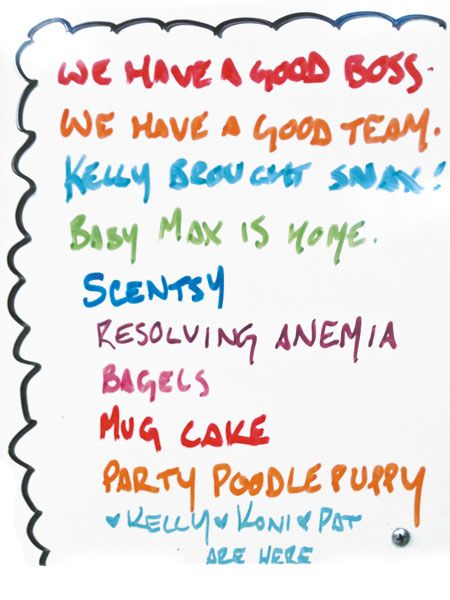 WE HAVE A GOOD BOSS.
WE HAVE A GOOD TEAM.
KELLY BROUGHT SNAX!
BABY MAX IS HOME.
SCENTSY
RESOLVING ANEMIA
BAGELS
MUG CAKE
PARTY POODLE PUPPY
♥KELLY♥KONI♥PAT
ARE HERE